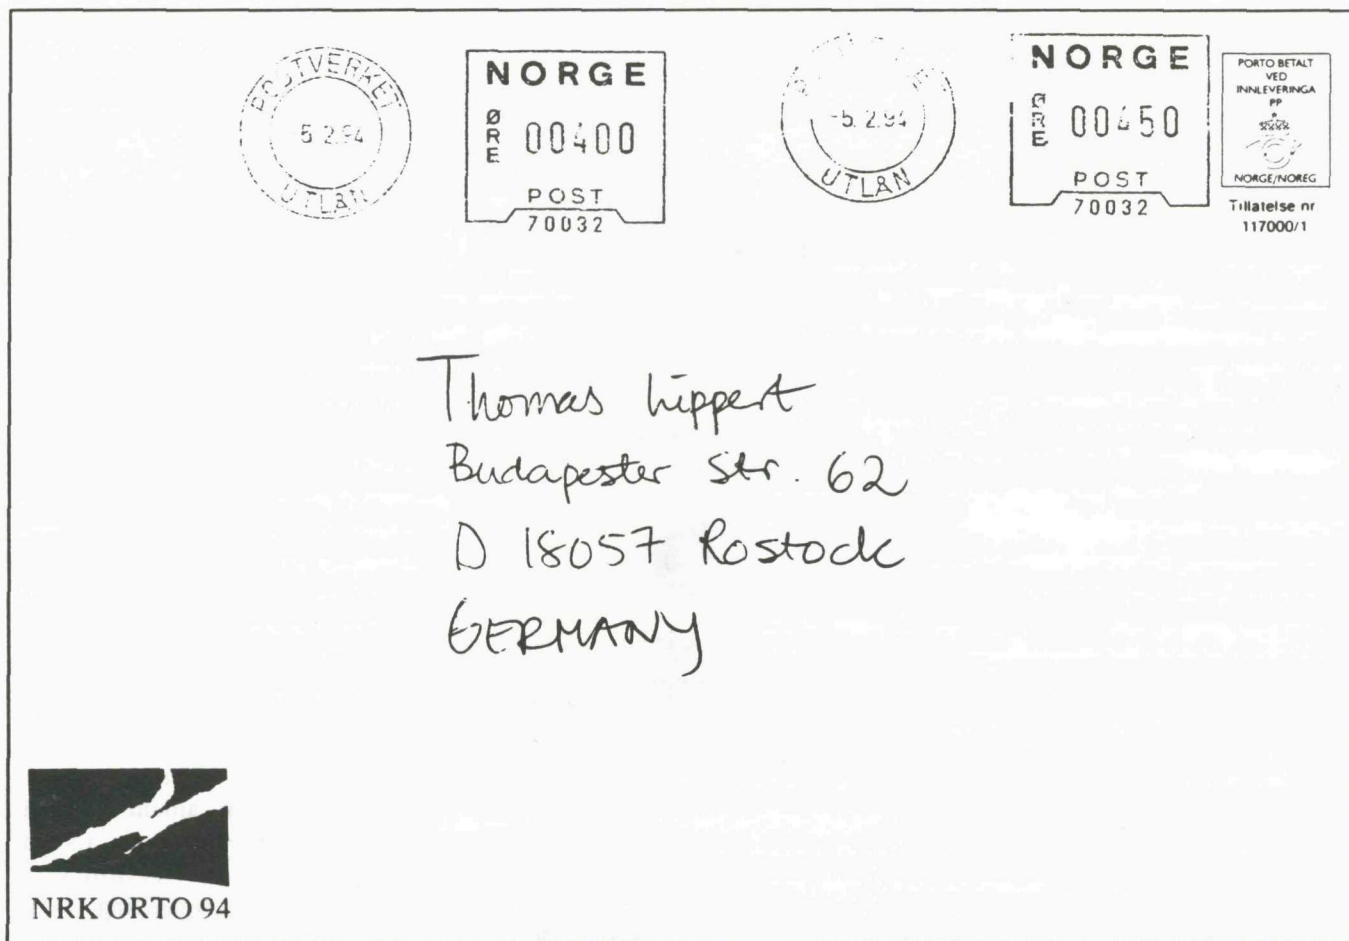 POSTVERKET
-5.2.94
UTLAN
NORGE
ØRE 00400
POST
70032
-5.2.94
UTLAN
NORGE
ØRE 00450
POST
70032
PORTO BETALT
VED
INNLEVERINGA
PP
NORGE/NOREG
Tillatelse nr
117000/1
Thomas Lippert
Budapester Str. 62
D 18057 Rostock
GERMANY
NRK ORTO 94